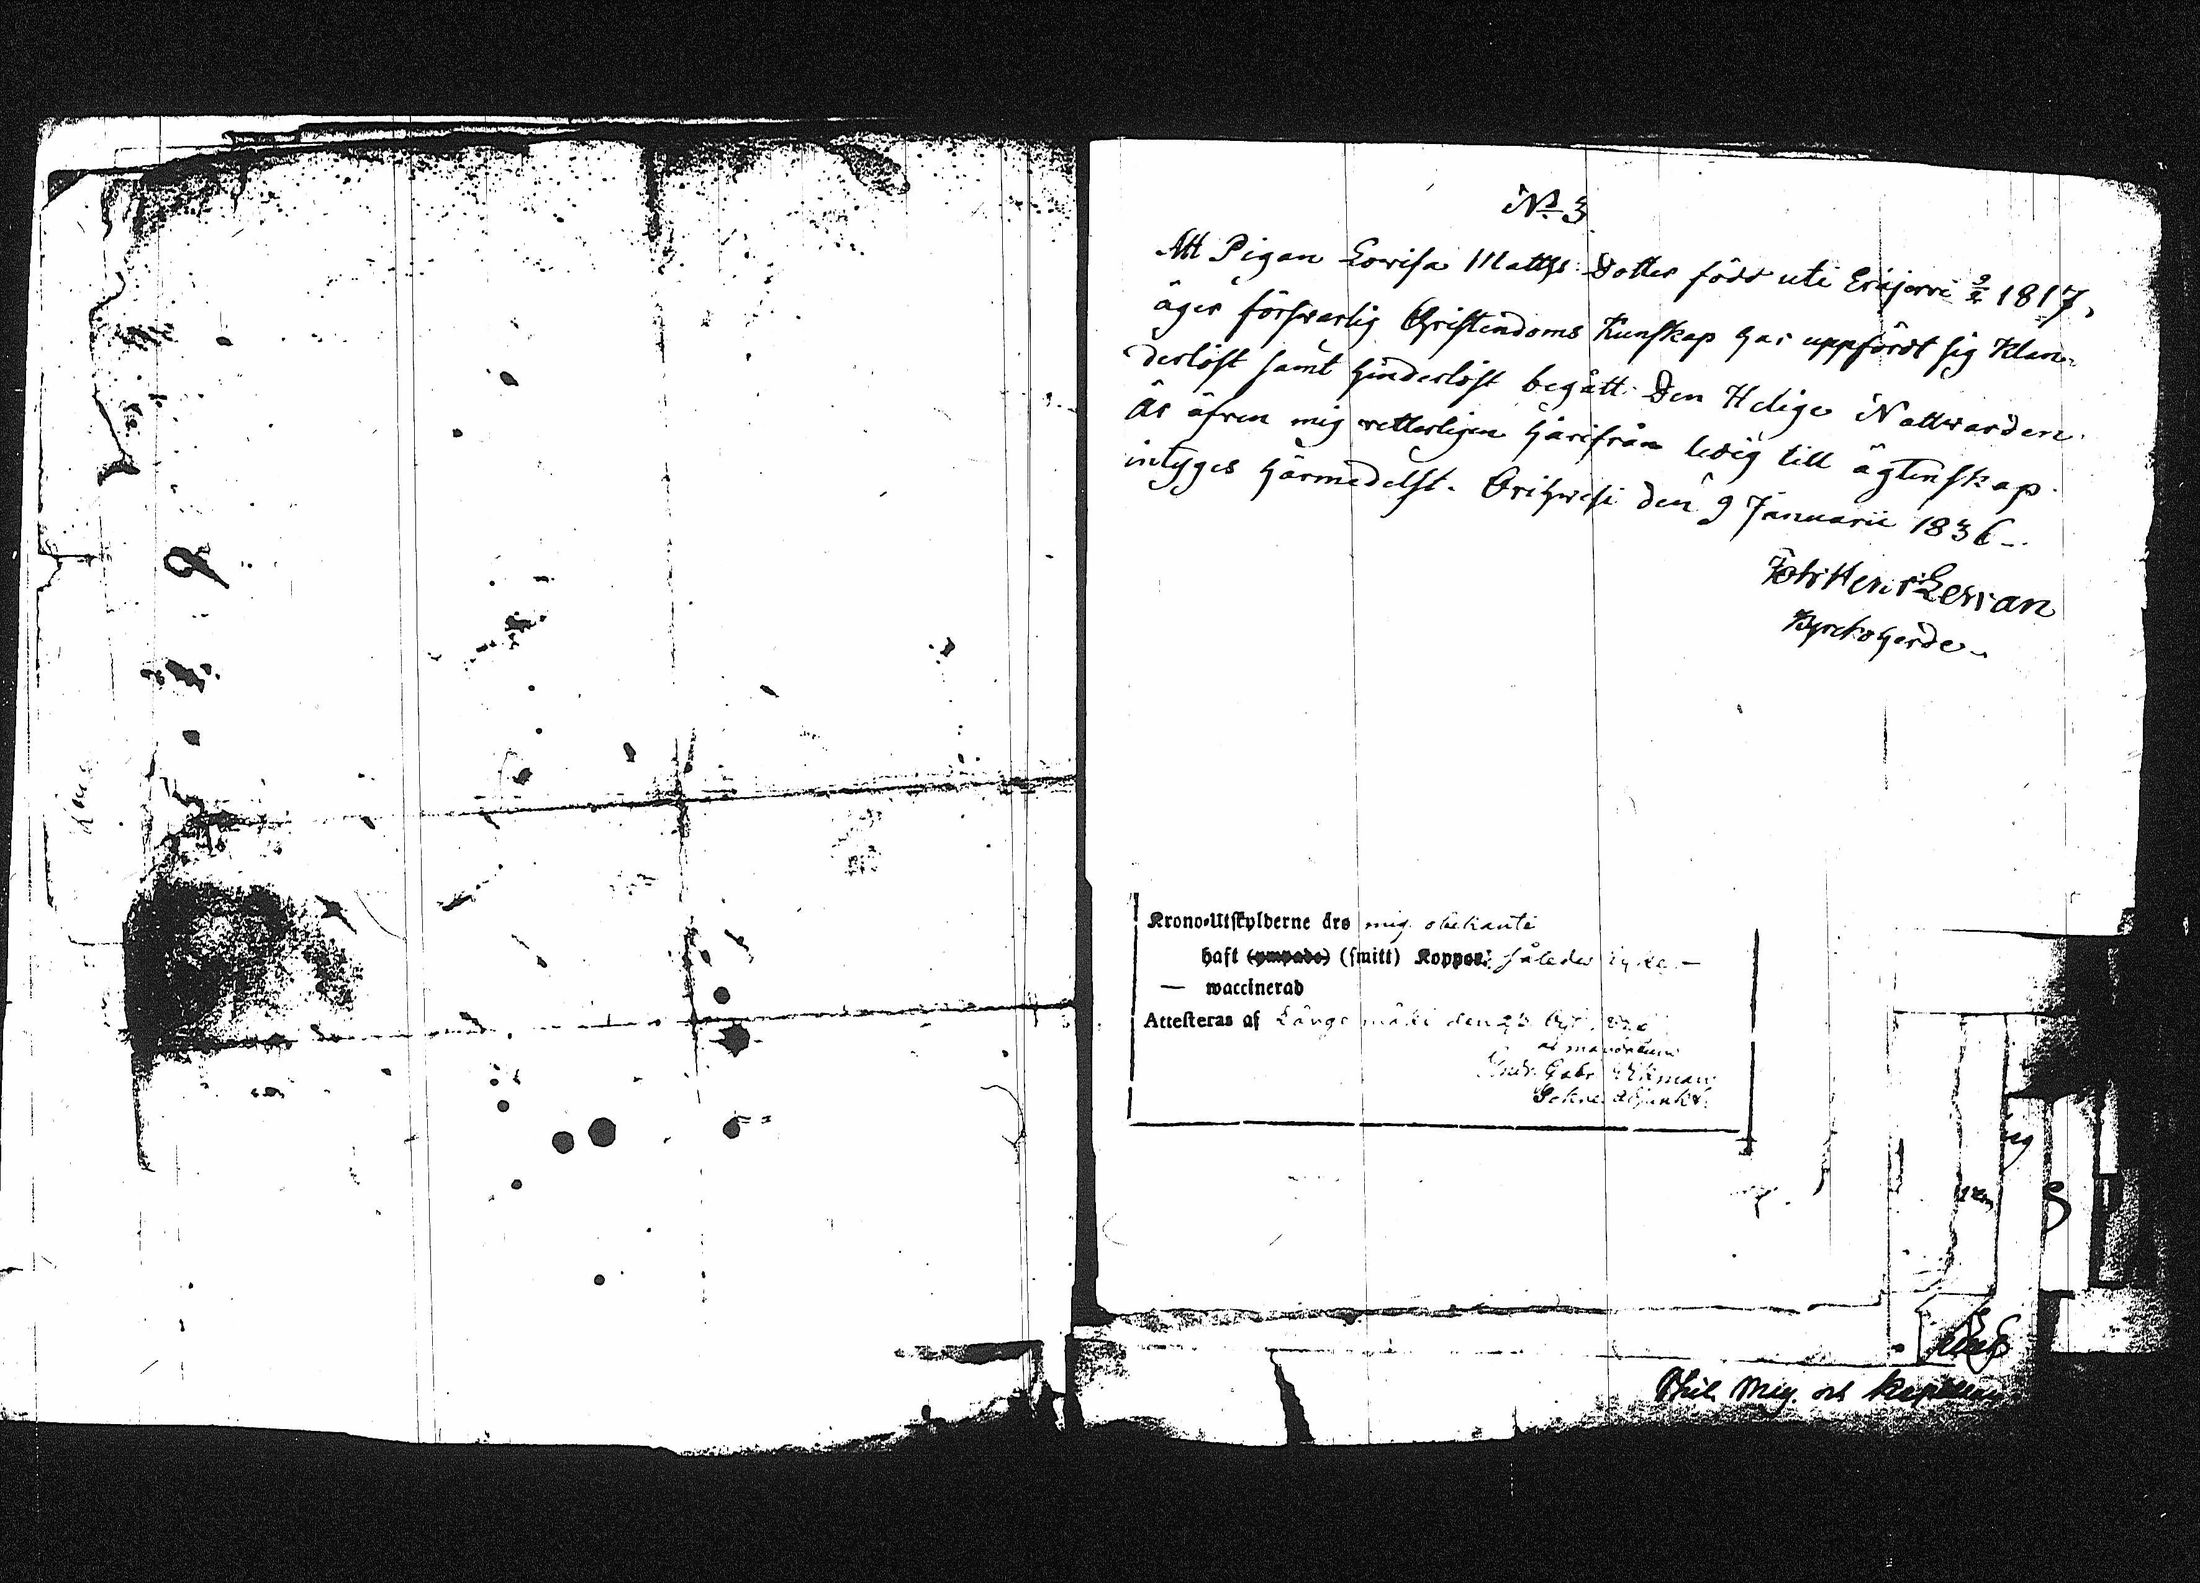 No 3
Att Pigan Lovisa Matths Dotter född uti Eräjervi 9/2 1817,
äger förswarlig Christendoms Kunskap har uppfördt sig Klan-
derlöst samt hinderlöst begått Den Helige Nattwarden.
Är äfven mig vetterligen härifrån ledig till ägtenskap
intyges härmedelst. Orihwesi den 9 Januarii 1836 -
Joh: Henr: Levan
Kyrckoherde.
Krono-Utskylderne års mig obekante
haft (ympade) (smitt) Koppor: således
— waccinerad
Attesteras af Längelmäki den 23
ad mandatum
Gabr Wikman
Sokne Adjunkt.
Phil. Mag. och Kapellan